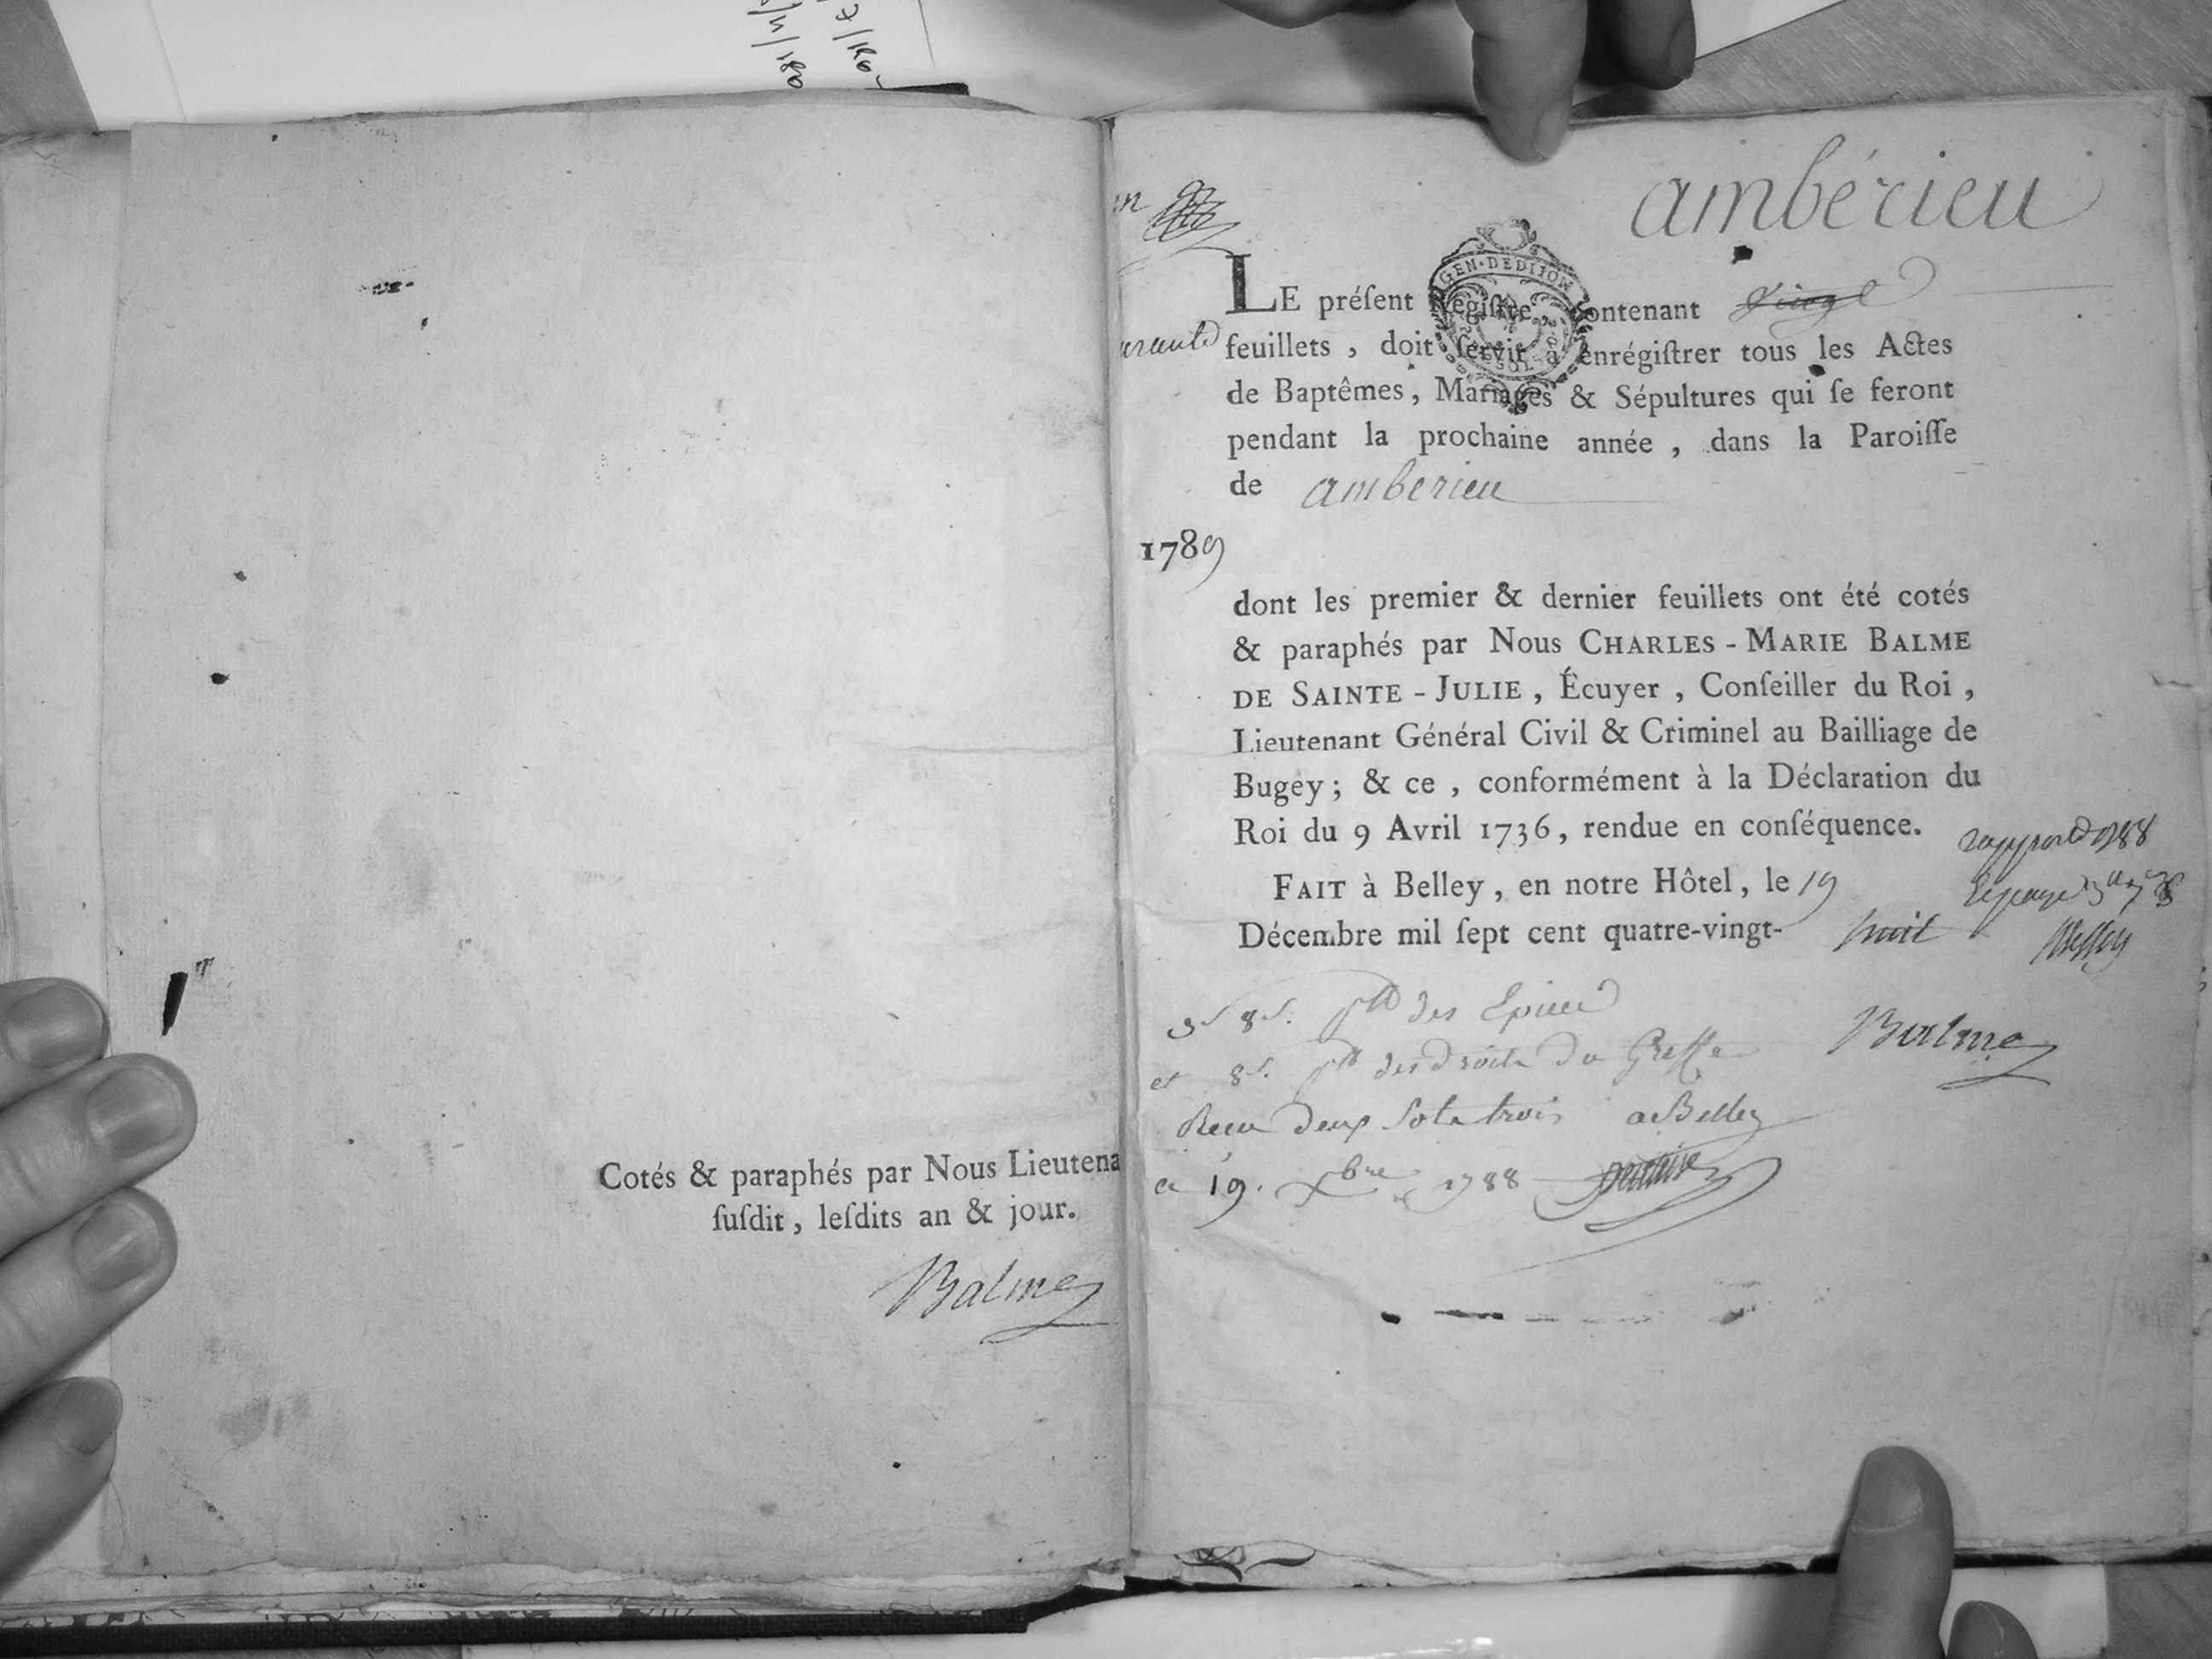 Cotés & paraphés par Nous Lieutena
ſuſdit, leſdits an & jour.
Balme
ambérieu
GEN·DEDIJON
LE préſent Régiſtre, contenant vingt
feuillets, doit ſervir à enrégiſtrer tous les Actes
de Baptêmes, Mariages & Sépultures qui ſe feront
pendant la prochaine année, dans la Paroiſſe
de amberieu
1789
dont les premier & dernier feuillets ont été cotés
& paraphés par Nous CHARLES-MARIE BALME
DE SAINTE-JULIE, Écuyer, Conſeiller du Roi,
Lieutenant Général Civil & Criminel au Bailliage de
Bugey; & ce, conformément à la Déclaration du
Roi du 9 Avril 1736, rendue en conſéquence.
FAIT à Belley, en notre Hôtel, le 19
Décembre mil ſept cent quatre-vingt- huit
Balme
des Epices
et 8 s. des droits du Greffe
Receu deux sols trois a Belley
19. Xbre 1788